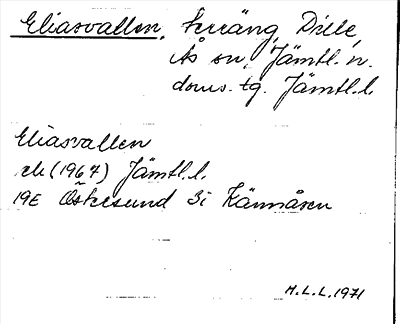 Eliasvallen, terräng, Dille,
Ås sn, Jämtl. n.
doms. tg. Jämtl. l.
Eliasvallen
ek (1967) Jämtl. l.
19E Östersund 3i Kännåsen
M.L.L. 1971